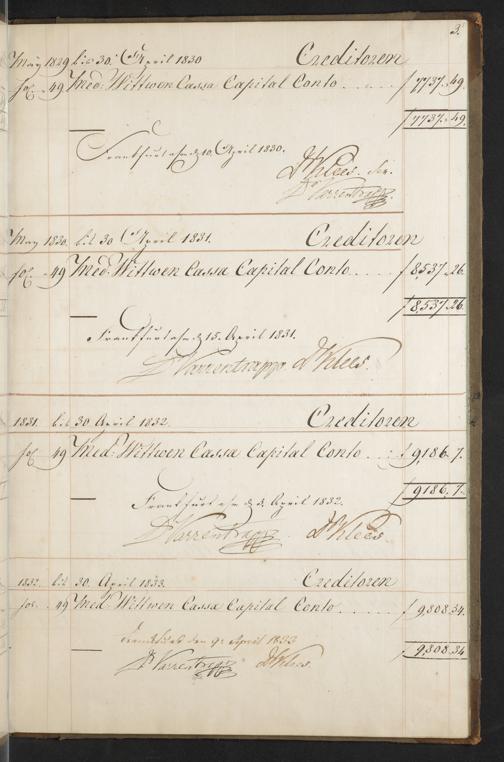 3.
May 1829 bis 30. April 1830 Creditoren
fol. 49 Med: Wittwen Cassa Capital Conto f 7737.49.
f 7737.49.
Frankfurt a/m d 10. April 1830.
Dr Klees. Sen.
Dr Varrentrapp.
May 1830. bis 30 April 1831. Creditoren
fol. 49 Med: Wittwen Cassa Capital Conto f 8,537.26.
f 8,537.26.
Frankfurt a/m d 15. April 1831.
Dr Varrentrapp. Dr Klees.
1831. bis 30 April 1832. Creditoren
fol. 49 Med: Wittwen Cassa Capital Conto f 9,186.7.
f 9186.7.
Frankfurt a/m d. April 1832.
Dr Varrentrapp Dr Klees.
1832. bis 30. April 1833. Creditoren
fol. 49 Med. Wittwen Cassa Capital Conto f 9,808.34.
f 9,808.34
den 9t April 1833
Dr Varrentrapp Dr Klees.